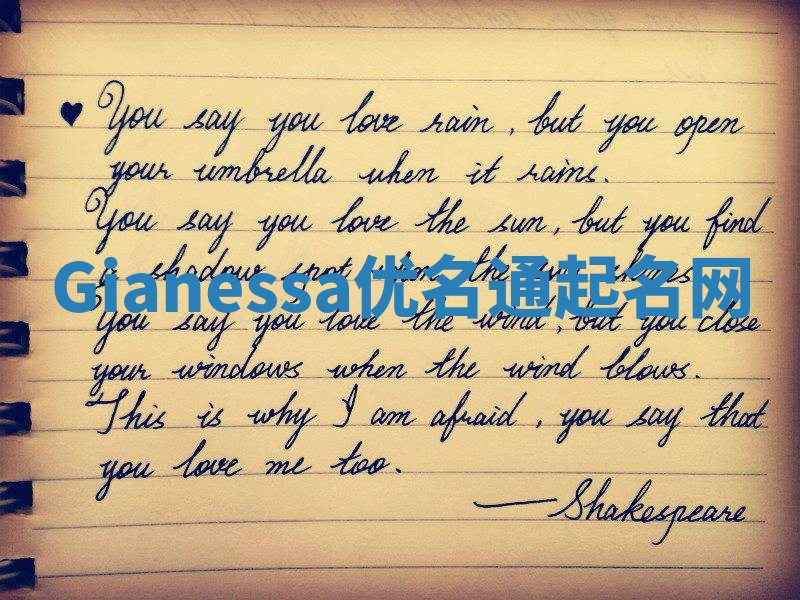 You say you love rain, but you open
your umbrella when it rains.
You say you love the sun, but you find
a shadow spot when the sun shines.
Gianessa优名通起名网
You say you love the wind, but you close
your windows when the wind blows.
This is why I am afraid, you say that
you love me too.
—Shakespeare